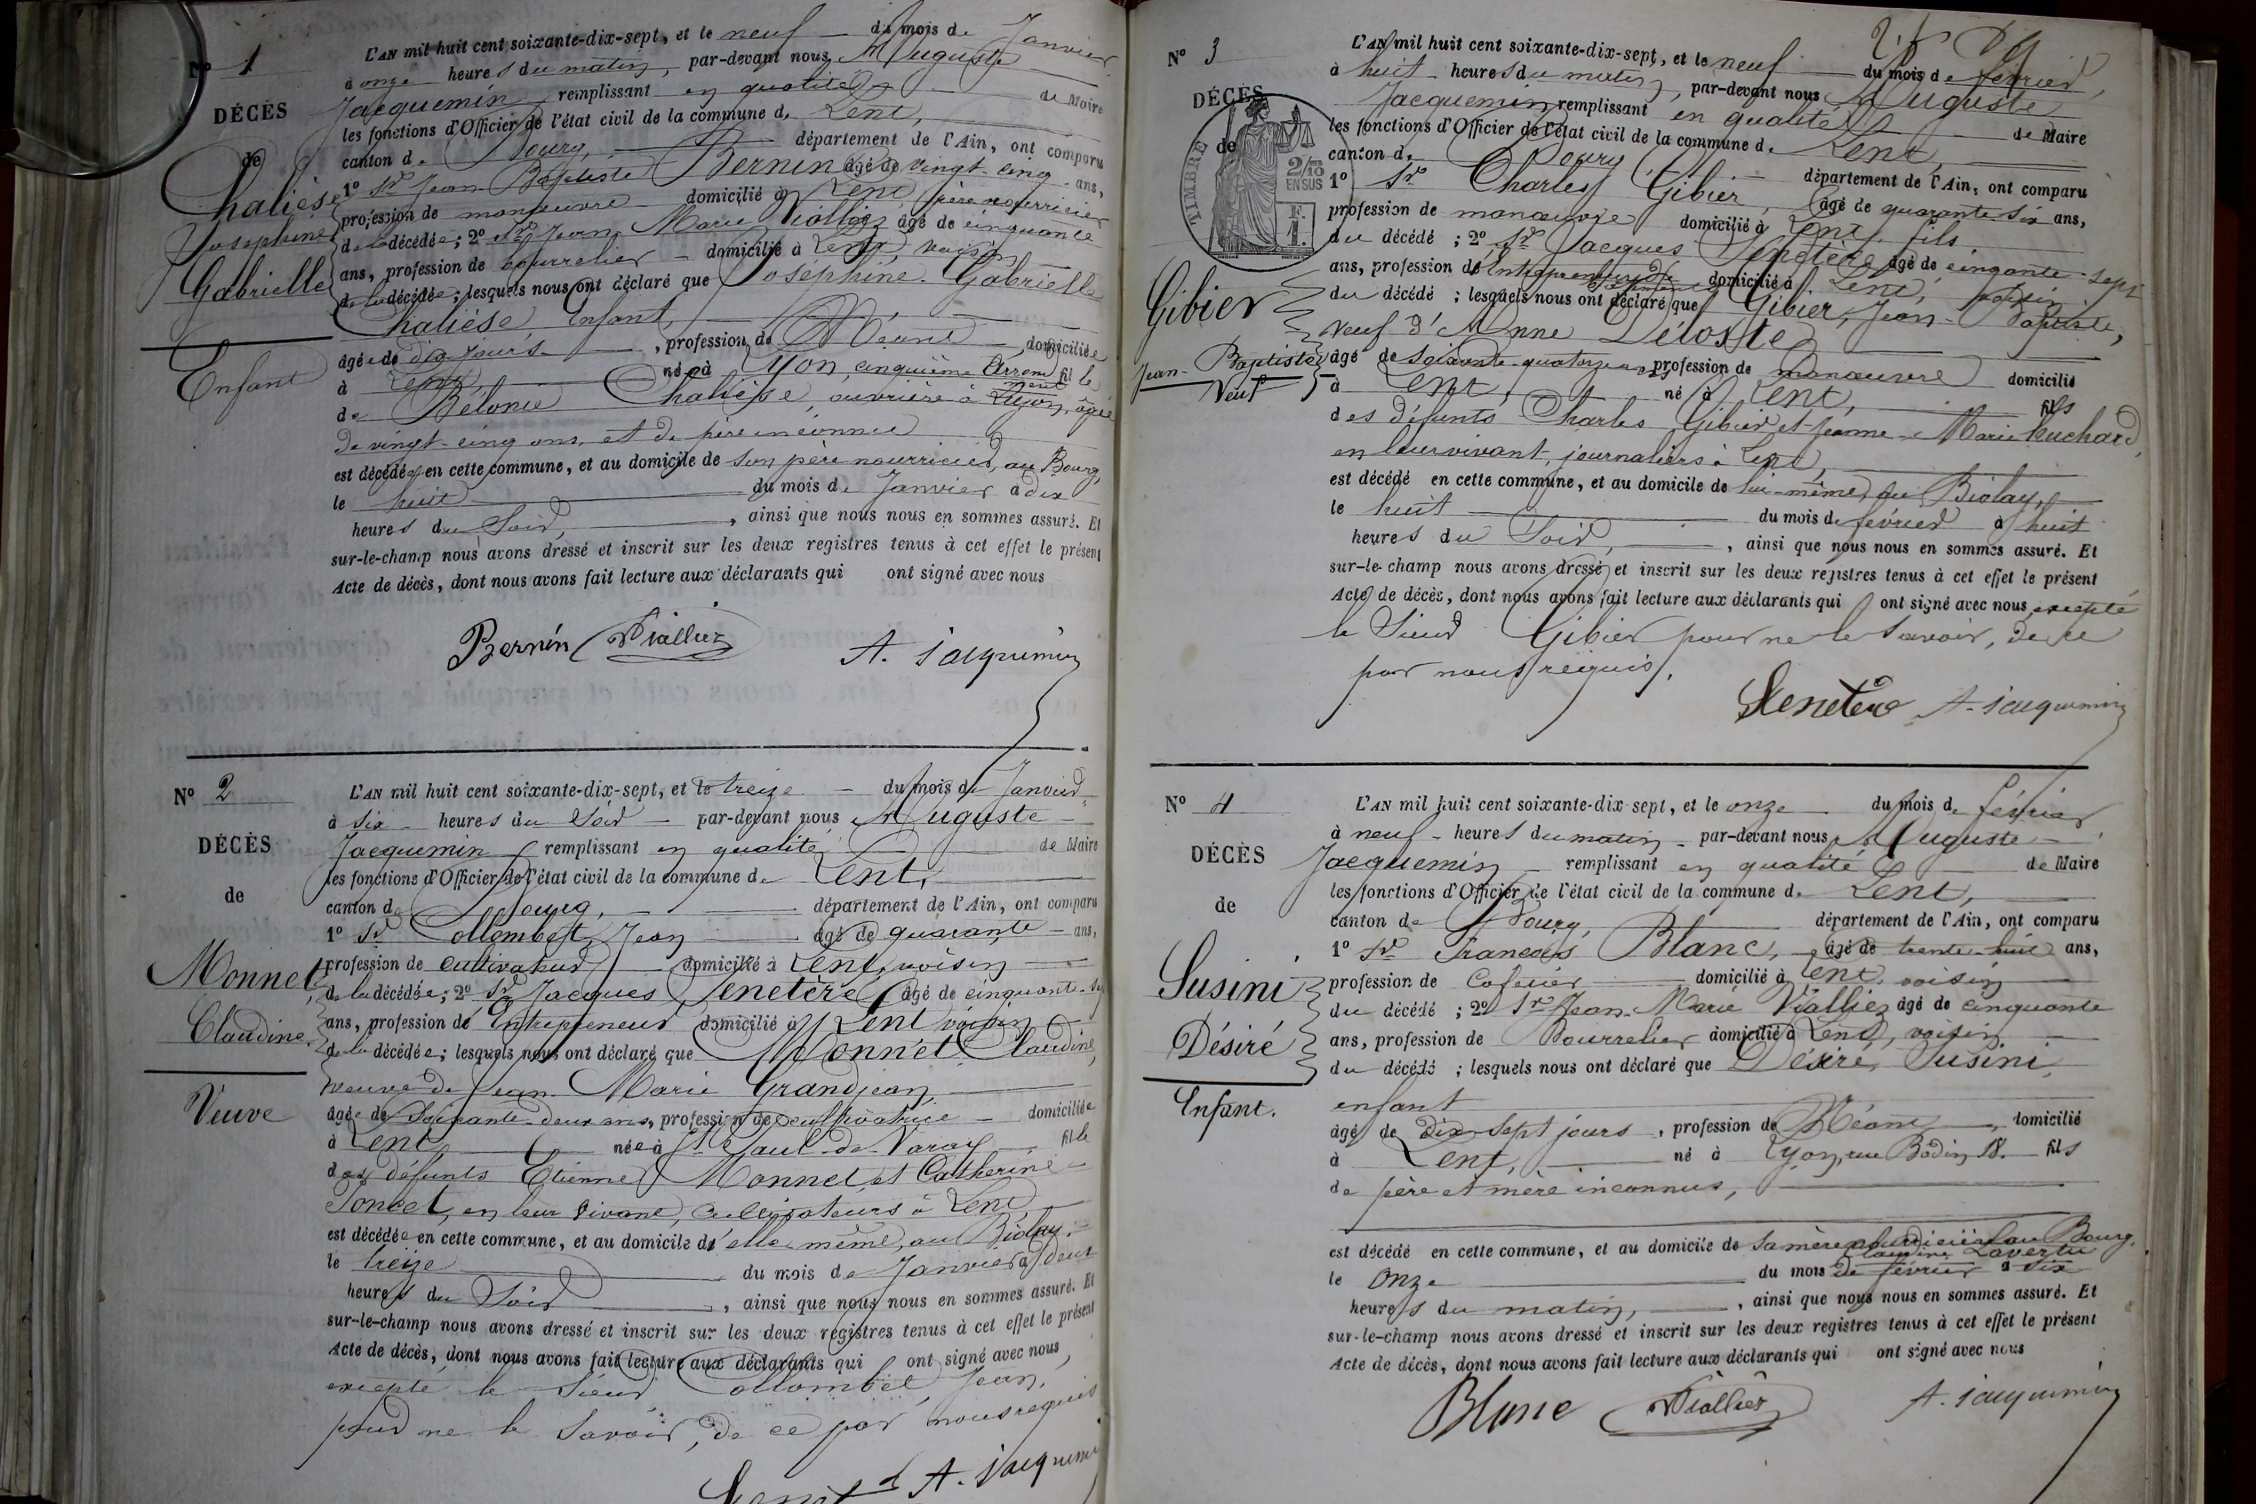 N° 1
DÉCÈS
de
Chalièse
Joséphine
Gabrielle
Enfant
L'AN mil huit cent soixante-dix-sept, et le neuf du mois de Janvier
à onze heures du matin, par-devant nous Auguste
Jacquemin remplissant en qualité de Maire
les fonctions d'Officier de l'état civil de la commune de Lent,
canton de Bourg, département de l'Ain, ont comparu
1° Sr Jean Baptiste Bernin âgé de vingt-cinq ans,
profession de manœuvre domicilié à Lent, père nourricier
de la décédée; 2° Sr Jean Marie Vialliez âgé de cinquante
ans, profession de bourrelier domicilié à Lent, voisin
de la décédée; lesquels nous ont déclaré que Joséphine Gabrielle
Chalièse, Enfant,
âgée de dix jours, profession de Néant, domiciliée
à Lent, née à Lyon, cinquième Arrondment fille
de Belonie Chalièse, ouvrière à Lyon, âgée
de vingt-cinq ans et de père inconnu
est décédée en cette commune, et au domicile de son père nourricier, au Bourg,
le huit du mois de Janvier à dix
heures du Soir, ainsi que nous nous en sommes assuré. Et
sur-le-champ nous avons dressé et inscrit sur les deux registres tenus à cet effet le présent
Acte de décès, dont nous avons fait lecture aux déclarants qui ont signé avec nous
Bernin Vialliez A. Jacquemin
N° 2
DÉCÈS
de
Monnet,
Claudine,
Veuve
L'AN mil huit cent soixante-dix-sept, et le treize du mois de Janvier
à six heures du Soir par-devant nous Auguste
Jacquemin remplissant en qualité de Maire
les fonctions d'Officier de l'état civil de la commune de Lent,
canton de Bourg, département de l'Ain, ont comparu
1° Sr Collombet, Jean âgé de quarante ans,
profession de cultivateur domicilié à Lent, voisin
de la décédée; 2° Sr Jacques Senetère âgé de cinquante-sept
ans, profession de Entrepreneur domicilié à Lent voisin
de la décédée; lesquels nous ont déclaré que Monnet Claudine,
veuve de Jean Marie Grandjean,
âgée de Soixante-deux ans, profession de cultivatrice domiciliée
à Lent, née à St Paul-de-Varax fille
des défunts Etienne Monnet et Catherine
Poncet, en leur vivant, cultivateurs à Lent
est décédée en cette commune, et au domicile d'elle-même, au Biolay,
le treize du mois de Janvier à deux
heures du Soir, ainsi que nous nous en sommes assuré. Et
sur-le-champ nous avons dressé et inscrit sur les deux registres tenus à cet effet le présent
Acte de décès, dont nous avons fait lecture aux déclarants qui ont signé avec nous,
excepté le Sieur Collombet Jean,
pour ne le savoir, de ce par nous requis
Senetère A. Jacquemin
N° 3
DÉCÈS
de
TIMBRE
2/10
EN SUS
F.
1.
Gibier
Jean-Baptiste
Veuf
L'AN mil huit cent soixante-dix-sept, et le neuf du mois de février
à huit heures du matin, par-devant nous Auguste
Jacquemin remplissant en qualité de Maire
les fonctions d'Officier de l'état civil de la commune de Lent,
canton de Bourg département de l'Ain, ont comparu
1° Sr Charles Gibier, âgé de quarante-six ans,
profession de manœuvre domicilié à Lent, fils
du décédé; 2° Sr Jacques Senetère âgé de cinquante-sept
ans, profession d'Entrepreneur de domicilié à Lent, voisin
du décédé; lesquels nous ont déclaré que Gibier, Jean-Baptiste,
veuf d'Anne Deloste
âgé de soixante-quatorze ans profession de manœuvre domicilié
à Lent, né à Lent, fils
des défunts Charles Gibier et Jeanne-Marie Huchard
en leur vivant, journaliers à Lent,
est décédé en cette commune, et au domicile de lui-même, au Biolay,
le huit du mois de février à huit
heures du Soir, ainsi que nous nous en sommes assuré. Et
sur-le-champ nous avons dressé et inscrit sur les deux registres tenus à cet effet le présent
Acte de décès, dont nous avons fait lecture aux déclarants qui ont signé avec nous, excepté
le Sieur Gibier pour ne le savoir, de ce
par nous requis.
Senetère A. Jacquemin
N° 4
DÉCÈS
de
Susini
Désiré
Enfant.
L'AN mil huit cent soixante-dix-sept, et le onze du mois de février
à neuf heures du matin par-devant nous Auguste
Jacquemin remplissant en qualité de Maire
les fonctions d'Officier de l'état civil de la commune de Lent,
canton de Bourg, département de l'Ain, ont comparu
1° Sr Francois Blanc, âgé de trente-huit ans,
profession de Cafetier domicilié à Lent, voisin
du décédé; 2° Sr Jean-Marie Vialliez âgé de cinquante
ans, profession de Bourrelier domicilié à Lent, voisin
du décédé; lesquels nous ont déclaré que Désiré Susini,
enfant
âgé de dix-sept jours, profession de Néant, domicilié
à Lent, né à Lyon, rue Bodin 18. fils
de père et mère inconnus,
est décédé en cette commune, et au domicile de sa mère nourricière au Bourg,
Claudine Lavertu
le onze du mois de février à six
heures du matin, ainsi que nous nous en sommes assuré. Et
sur-le-champ nous avons dressé et inscrit sur les deux registres tenus à cet effet le présent
Acte de décès, dont nous avons fait lecture aux déclarants qui ont signé avec nous
Blanc Vialliez A. Jacquemin